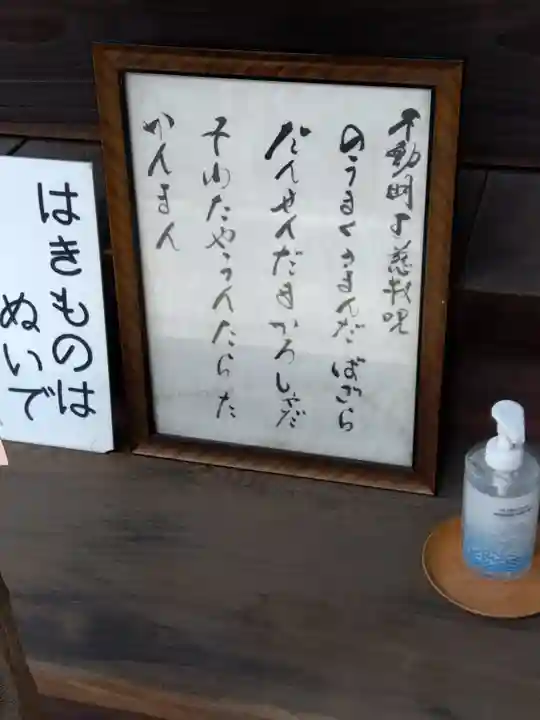 不動明王慈救呪
のうまくさまんだ ばざら
だんせんだまかろしゃだ
そわたやうんたらた
かんまん
はきものは
ぬいで